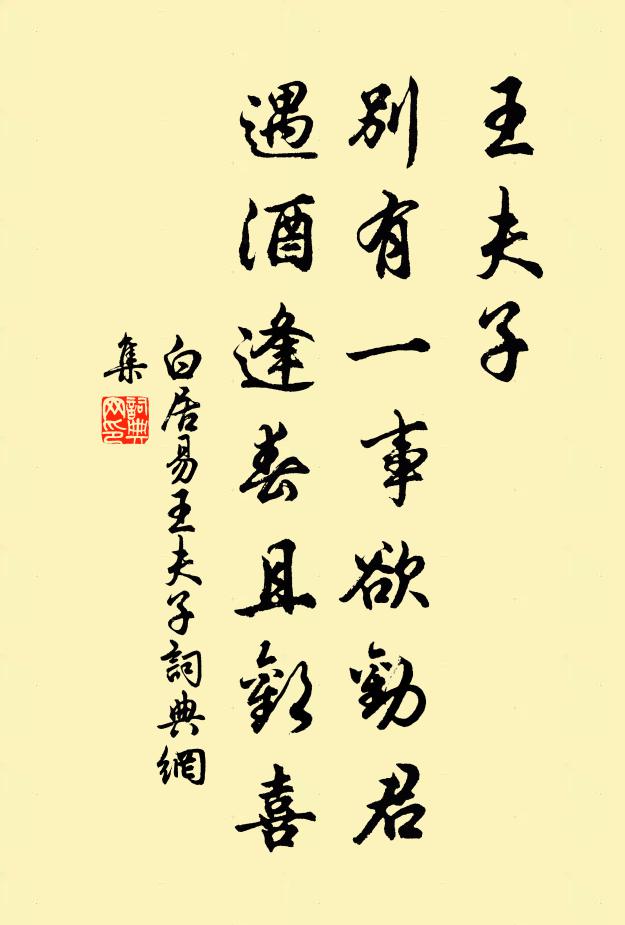 王夫子
別有一事欲勸君
遇酒逢春且歡喜
白居易王夫子詞典網
集
詞典
网印